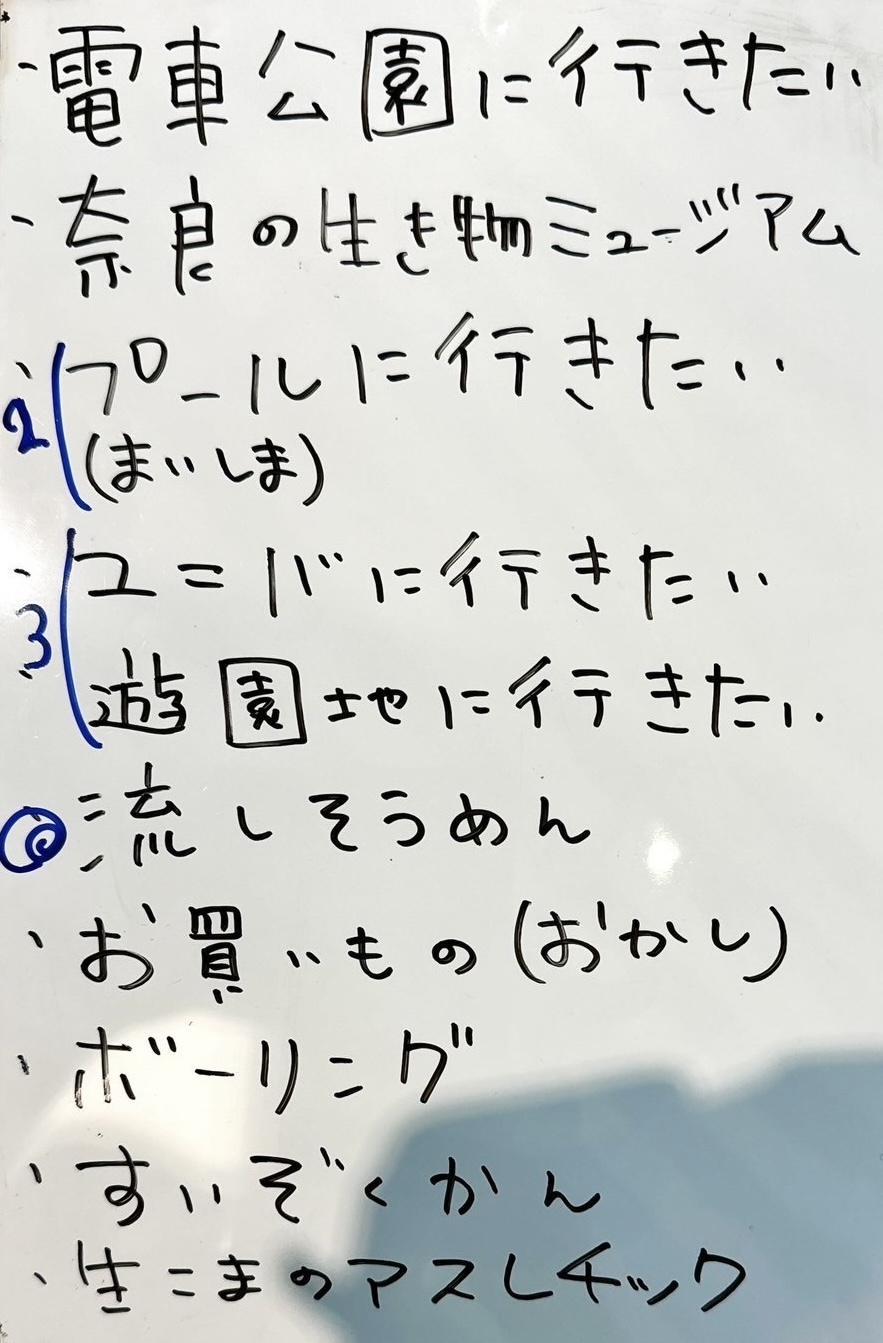 ・電車公園に行きたい
・奈良の生き物ミュージアム
・プールに行きたい
2 (まいしま)
・ユニバに行きたい
3 遊園地に行きたい
◎流しそうめん
・お買いもの(おかし)
・ボーリング
・すいぞくかん
・生こまのアスレチック